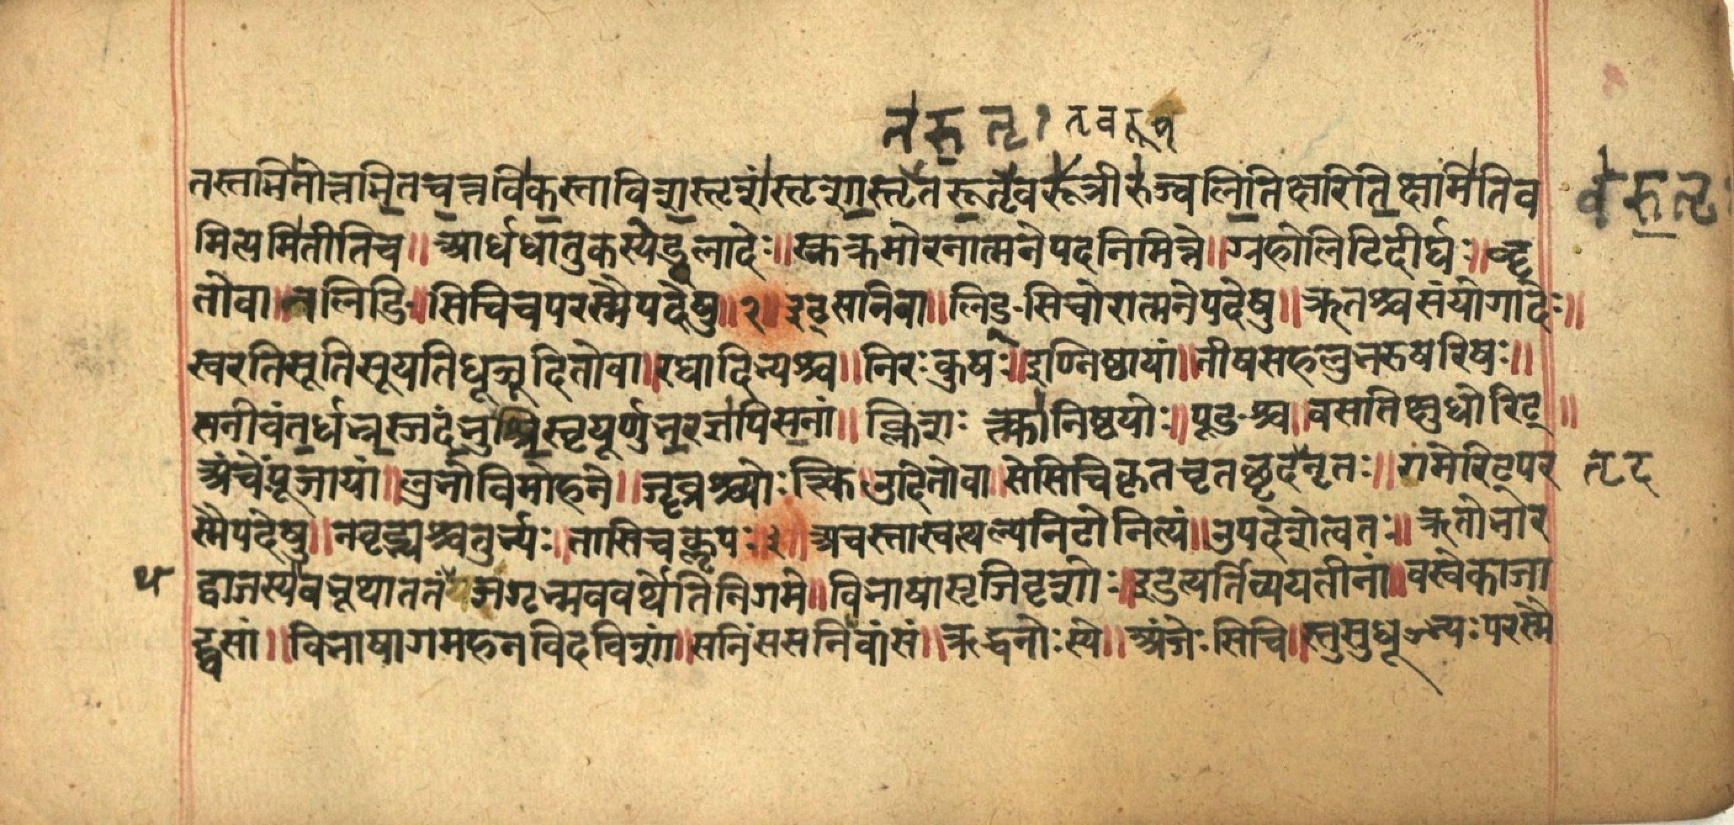 तरुतृ। तवरूतृ
तस्तभितोत्तभितचत्तविकस्ताविशस्तृशंस्तृशास्तृतरुतृतरूतृवरुतृवरूत्रीरुज्वलितिक्षरितिक्षमितिव वरुतृ
मित्यमितीतिच॥ आर्धधातुकस्येड्वलादेः॥ स्नुक्रमोरनात्मनेपदनिमित्ते॥ ग्रहोलिटिदीर्घः॥ वॄ
तोवा॥ नलिङि॥ सिचिचपरस्मैपदेषु॥ २॥ इट्सनिवा॥ लिङ्सिचोरात्मनेपदेषु॥ ऋतश्चसंयोगादेः॥
स्वरतिसूतिसूयतिधूञूदितोवा॥ रधादिभ्यश्च॥ निरःकुषः॥ इण्निष्ठायां॥ तीषसहलुभरुषरिषः॥
सनीवंतर्धभ्रस्जदंभुश्रिस्वृयूर्णुभरज्ञपिसनां॥ क्लिशः क्त्वानिष्ठयोः॥ पूङश्च॥ वसतिक्षुधोरिट्॥
अंचेःपूजायां॥ लुभोविमोहने॥ जॄव्रश्च्योःक्त्वि॥ उदितोवा॥ सेसिचिकृतचृतछृदतृदनृतः॥ गमेरिट्पर तृद
स्मैपदेषु॥ नवृद्भ्यश्चतुर्भ्यः॥ तासिचकॢपः॥ ३॥ अचस्तास्वत्थल्यनिटोनित्यं॥ उपदेशेत्वतः॥ ऋतोभार
द्वाजस्यबभूथाततंथजगृभ्मववर्थेतिनिगमे॥ विभाषासृजिदृशोः॥ इडत्यर्तिव्ययतीनां॥ वस्वेकाजा थ
द्घसां॥ विभाषागमहनविदविशां॥ सनिंससनिवांसं॥ ऋद्धनोःस्ये॥ अंजेःसिचि॥ स्तुसुधूञ्भ्यःपरस्मै